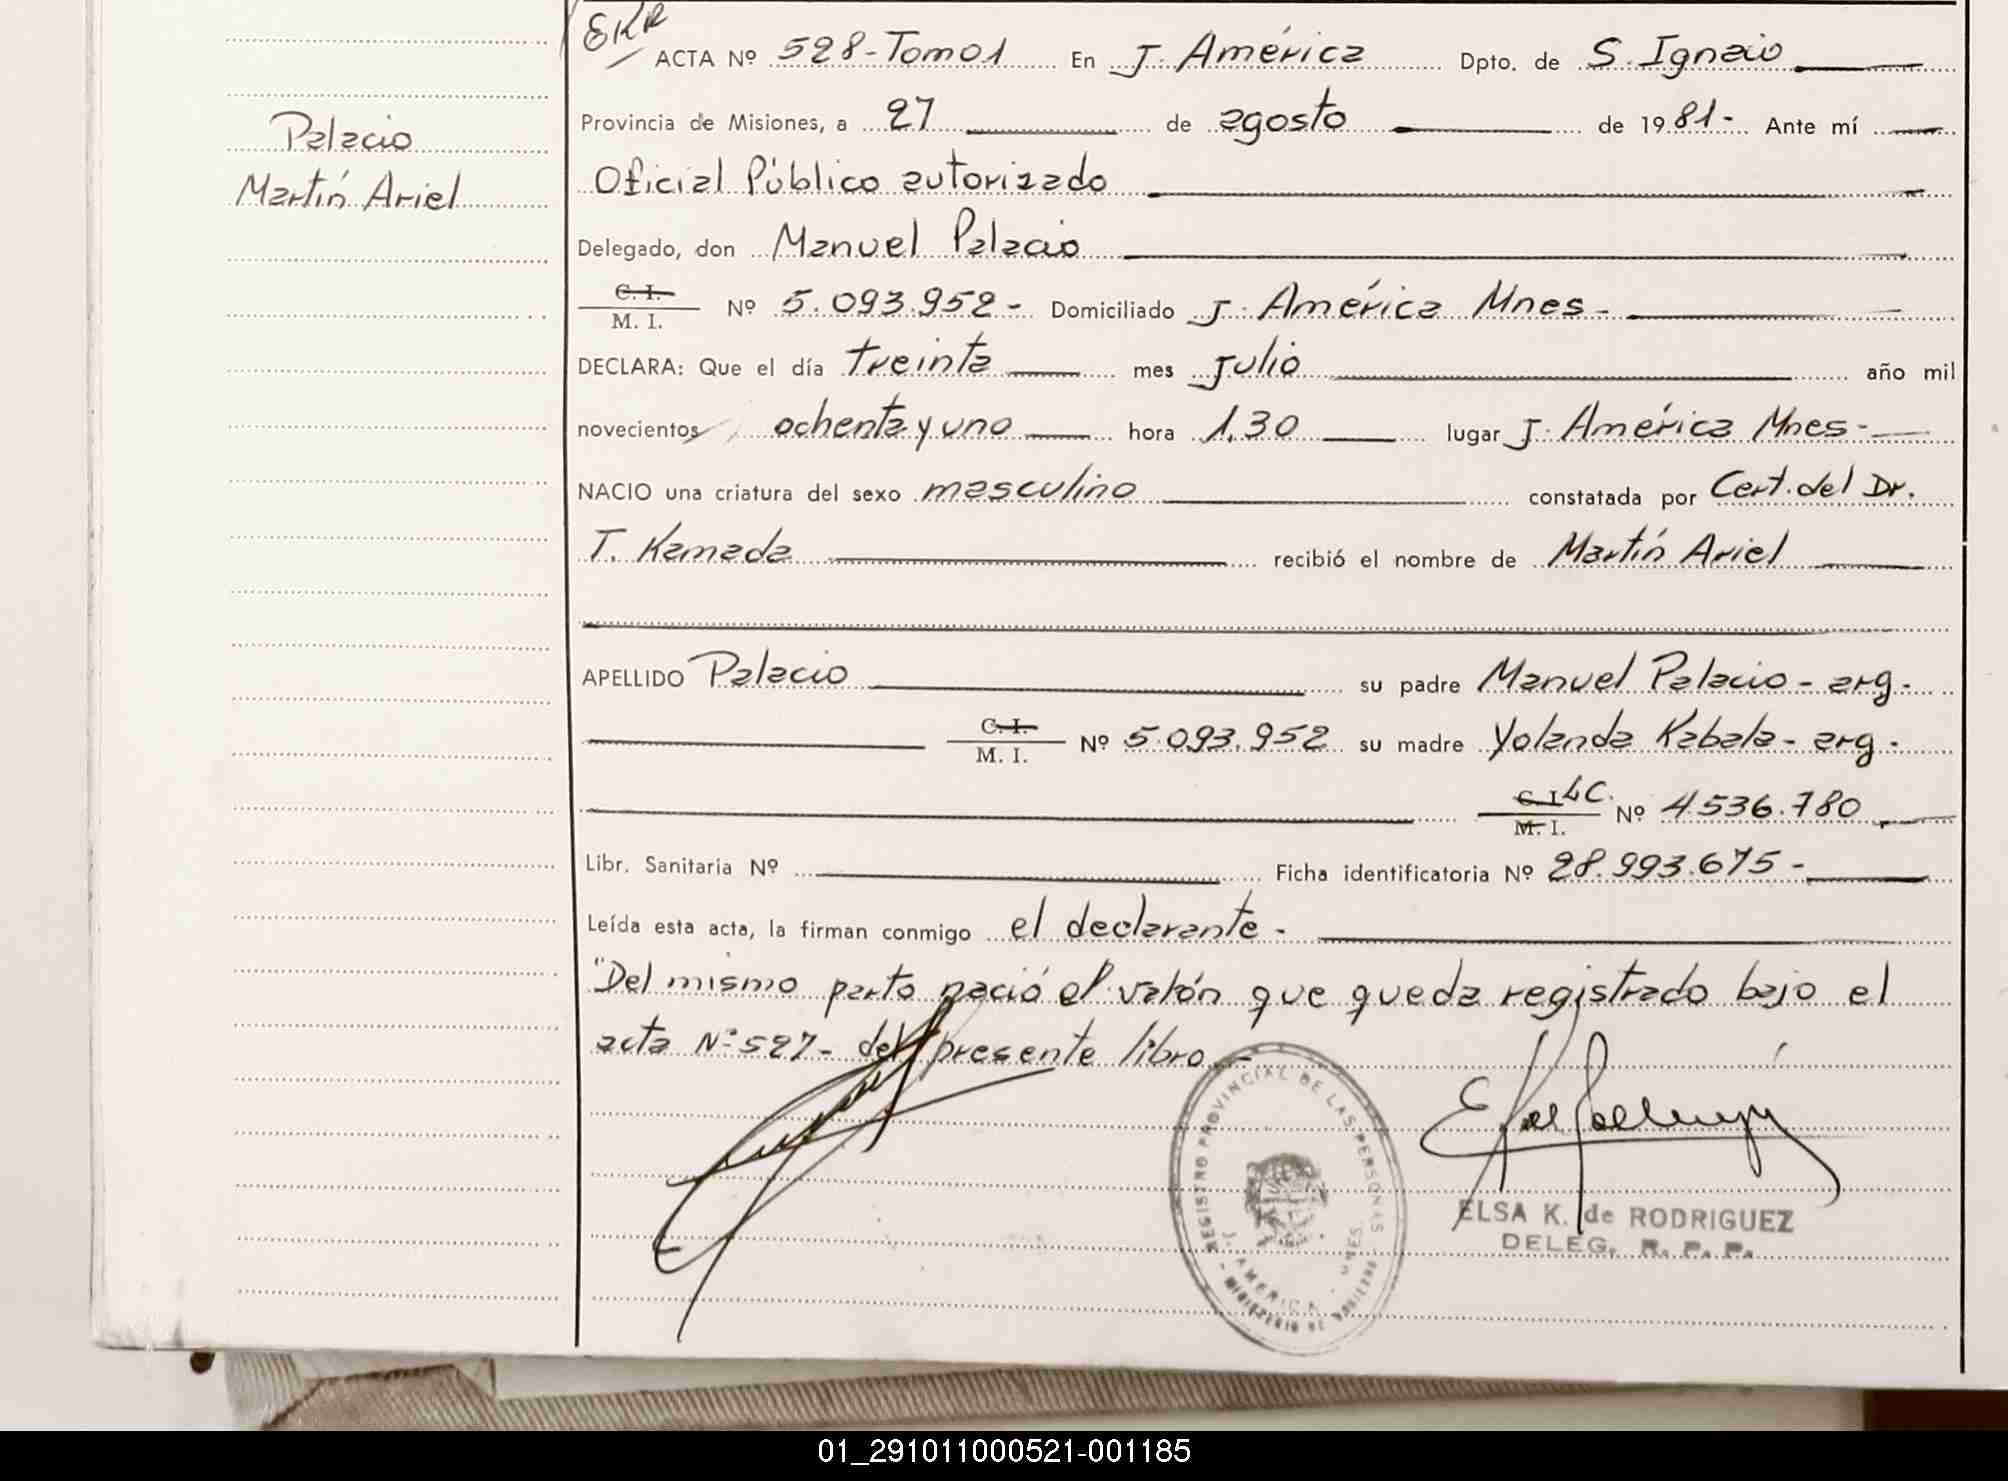 EKR
ACTA Nº 528-Tomo1 En J. América Dpto. de S. Ignacio
Palacio
Martín Ariel
Provincia de Misiones, a 27 de agosto de 1981- Ante mí
Oficial Público autorizado
Delegado, don Manuel Palacio
C. I.
M. I. Nº 5.093.952- Domiciliado J. América Mnes-
DECLARA: Que el día treinta mes julio año mil
novecientos ochenta y uno hora 1,30 lugar J. América Mnes-
NACIO una criatura del sexo masculino constatada por Cert. del Dr.
T. Kamada recibió el nombre de Martín Ariel
APELLIDO Palacio su padre Manuel Palacio - arg.
C. I.
M. I. Nº 5.093.952 su madre Yolanda Kabala - arg.
C. I. LC.
M. I. Nº 4.536.780
Libr. Sanitaria Nº Ficha identificatoria Nº 28.993.675-
Leída esta acta, la firman conmigo el declarante -
"Del mismo parto nació el varón que queda registrado bajo el
acta Nº 527- del presente libro.-
REGISTRO PROVINCIAL DE LAS PERSONAS
J. AMERICA - MNES.
MINISTERIO DE GOBIERNO
ELSA K. de RODRIGUEZ
DELEG. R. P. P.
01_291011000521-001185